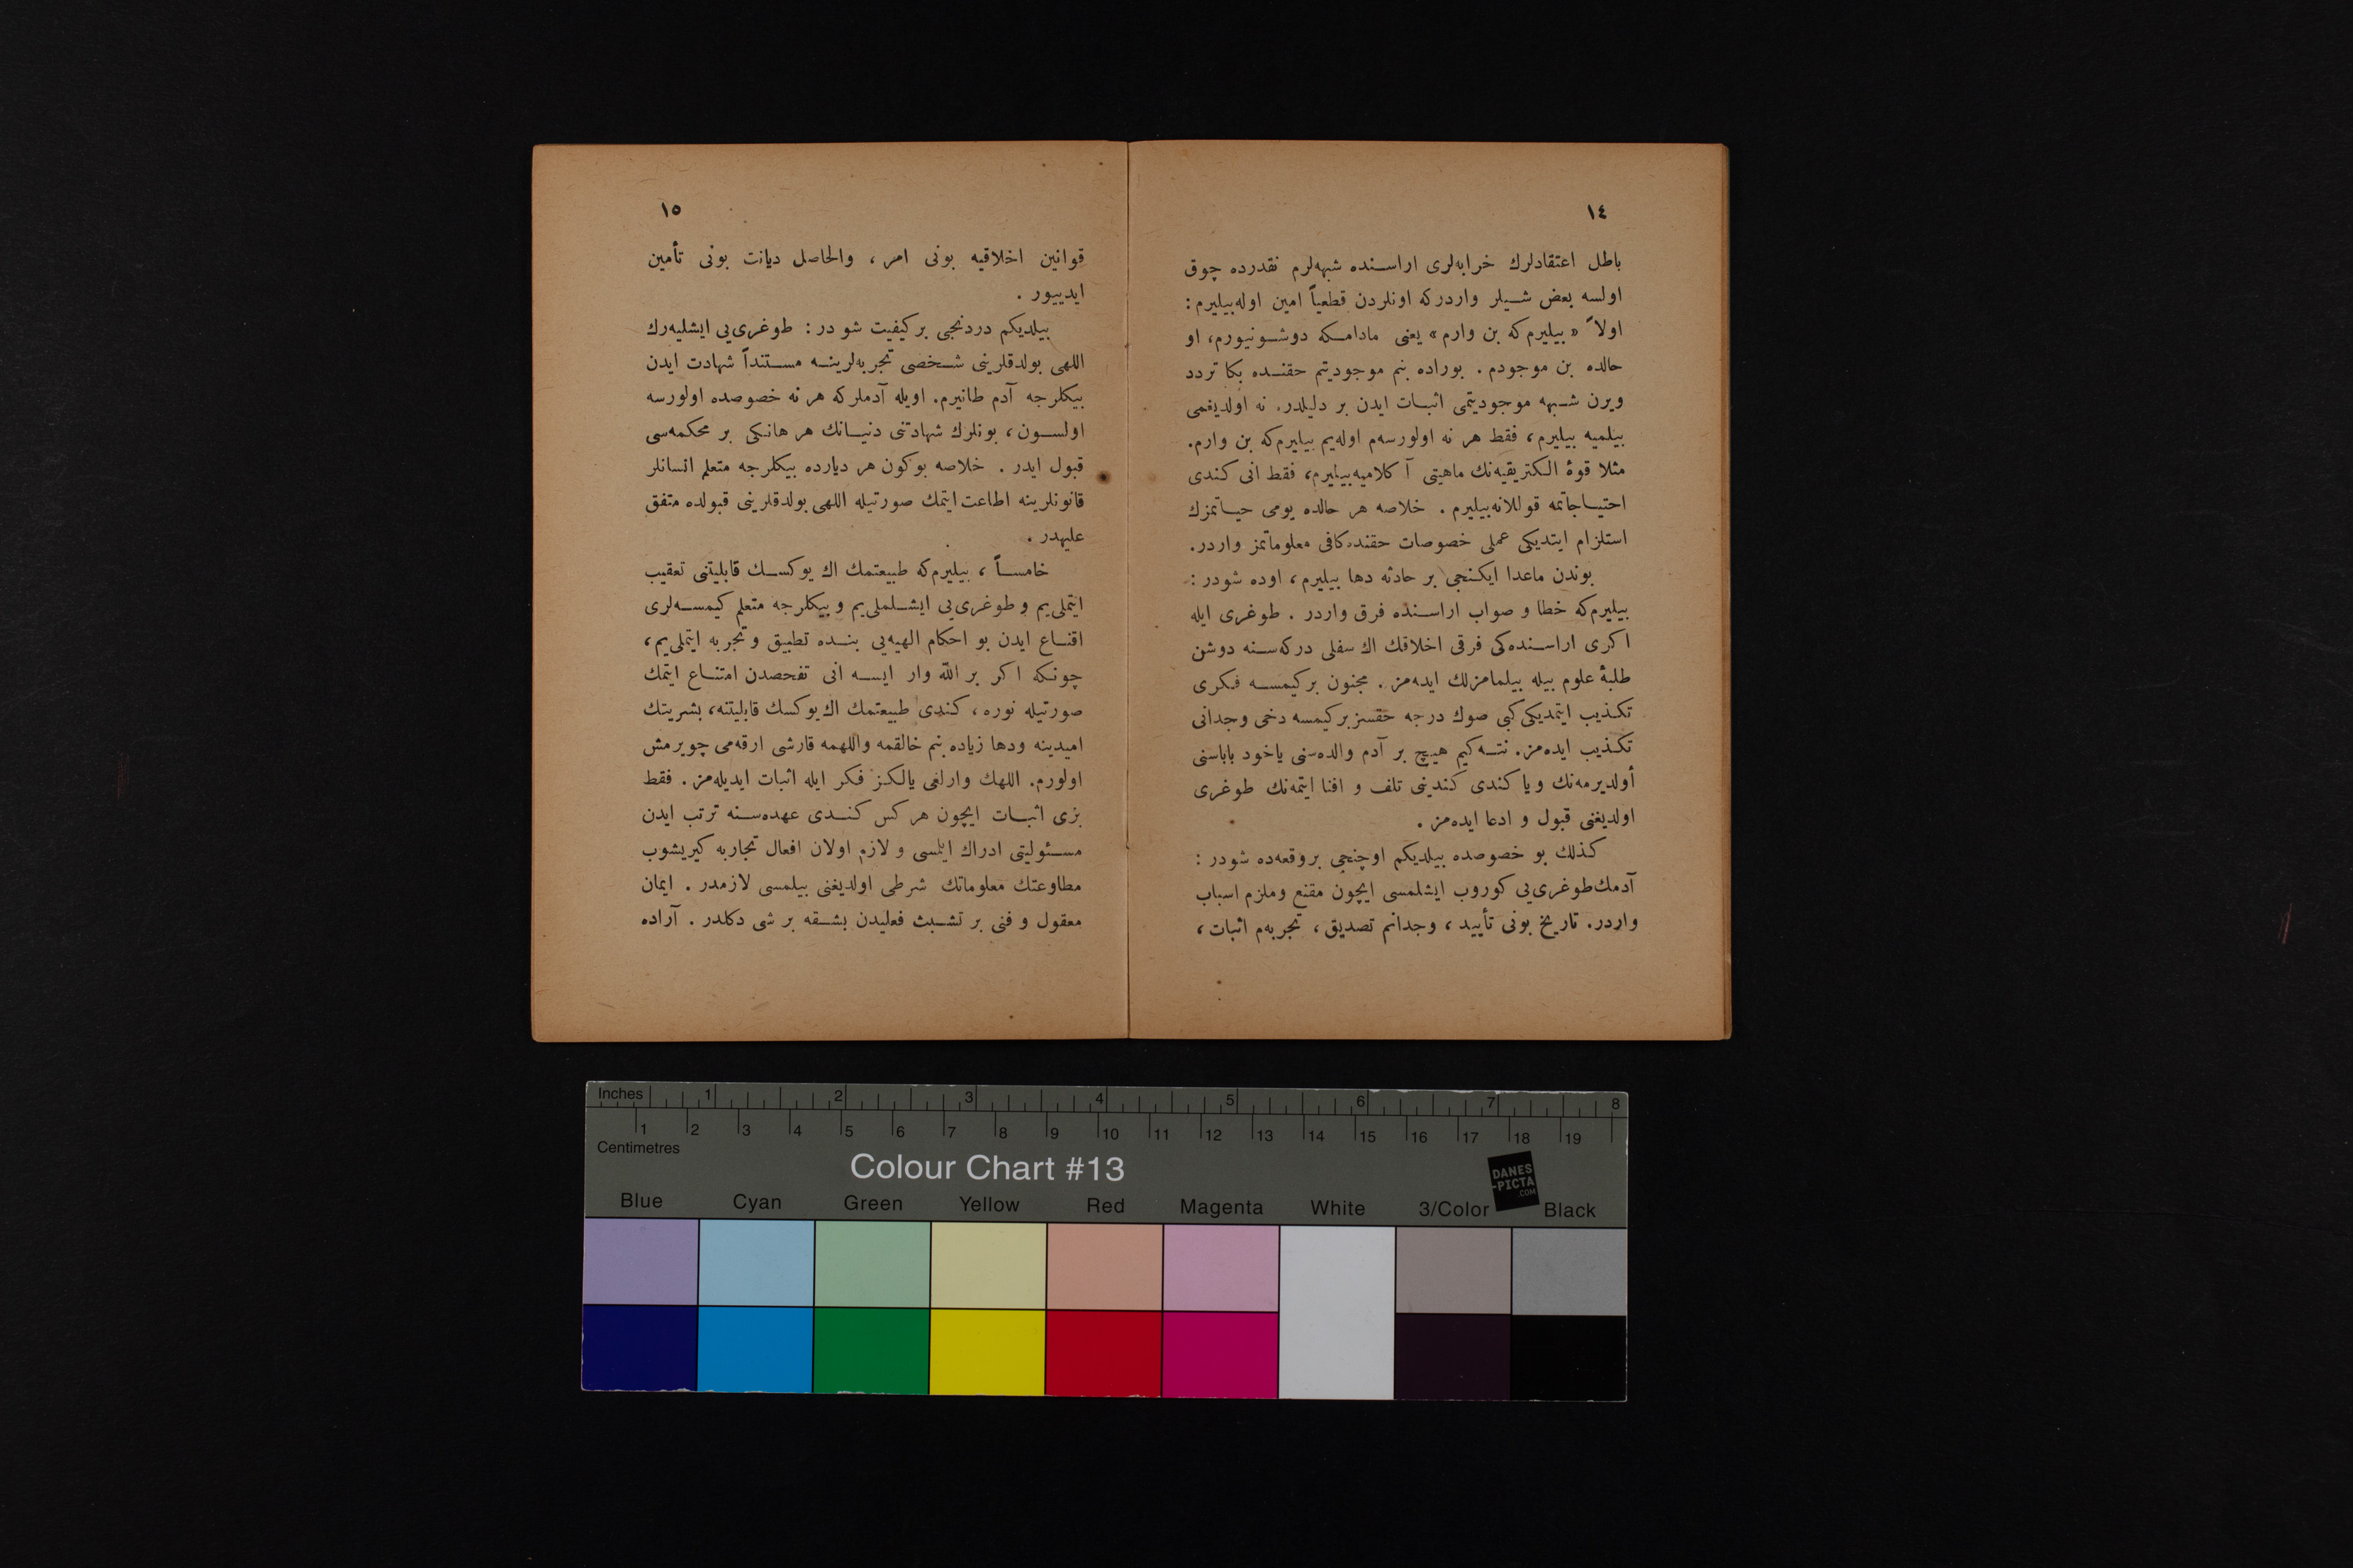 ١٤
باطل اعتقادلرك خرابه‌لری اراسنده شبهه‌لرم نقدرده چوق
اولسه بعض شیلر واردركه اونلردن قطعیاً امین اوله‌بیلیرم :
اولاً « بیلیرم‌كه بن وارم » یعنی مادامكه دوشونیورم، او
حالده بن موجودم . بوراده بنم موجودیتم حقنده بكا تردد
ویرن شبهه موجودیتمی اثبات ایدن بر دلیلدر. نه اولدیغمی
بیلمیه بیلیرم، فقط هر نه اولورسه‌م اوله‌یم بیلیرم‌كه بن وارم.
مثلا قوهٔ الكتریقیه‌نك ماهیتی آكلامیه‌بیلیرم، فقط انی كندی
احتیاجاتمه قوللانه‌بیلیرم . خلاصه هر حالده یومی حیاتمزك
استلزام ایتدیكی عملی خصوصات حقنده كافی معلوماتمز واردر.
بوندن ماعدا ایكنجی بر حادثه دها بیلیرم، اوده شودر :
بیلیرم‌كه خطا و صواب اراسنده فرق واردر . طوغری ایله
اكری اراسنده‌كی فرقی اخلاقك اك سفلی دركه‌سنه دوشن
طلبهٔ علوم بیله بیلمامزلك ایده‌مز . مجنون بركیمسه فكری
تكذیب ایتمدیكی كبی صوك درجه حقسز بركیمسه دخی وجدانی
تكذیب ایده‌مز. نته‌كیم هیچ بر آدم والده‌سنی یاخود باباسنی
أولدیرمه‌نك ویا كندی كندینی تلف و افنا ایتمه‌نك طوغری
اولدیغنی قبول و ادعا ایده‌مز .
كذلك بو خصوصده بیلدیكم اوچنجی بروقعه‌ده شودر :
آدمك طوغری‌یی كوروب ایشلمسی ایچون مقنع وملزم اسباب
واردر. تاریخ بونی تأیید ، وجدانم تصدیق ، تجربه‌م اثبات ،
١٥
قوانین اخلاقیه بونی امر ، والحاصل دیانت بونی تأمین
ایدییور .
بیلدیكم دردنجی بركیفیت شو در : طوغری‌یی ایشلیه‌رك
اللهی بولدقلرینی شخصی تجربه‌لرینه مستنداً شهادت ایدن
بیكلرجه آدم طانیرم. اویله آدملركه هر نه خصوصده اولورسه
اولسون ، بونلرك شهادتنی دنیانك هر هانكی بر محكمه‌سی
قبول ایدر . خلاصه بوكون هر دیارده بیكلرجه متعلم انسانلر
قانونلرینه اطاعت ایتمك صورتیله اللهی بولدقلرینی قبولده متفق
علیهدر .
خامساً ، بیلیرم‌كه طبیعتمك اك یوكسك قابلیتنی تعقیب
ایتملی‌یم و طوغری‌یی ایشلملی‌یم و بیكلرجه متعلم كیمسه‌لری
اقناع ایدن بو احكام الهیه‌یی بنده تطبیق و تجربه ایتملی‌یم ،
چونكه اكر بر الله وار ایسه انی تفحصدن امتناع ایتمك
صورتیله نوره ، كندی طبیعتمك اك یوكسك قابلیتنه، بشریتك
امیدینه ودها زیاده بنم خالقمه واللهمه قارشی ارقه‌می چویرمش
اولورم. اللهك وارلغی یالكز فكر ایله اثبات ایدیله‌مز . فقط
بزی اثبات ایچون هر كس كندی عهده‌سنه ترتب ایدن
مسئولیتی ادراك ایلمسی و لازم اولان افعال تجاربه كیریشوب
مطاوعتك معلوماتك شرطی اولدیغنی بیلمسی لازمدر . ایمان
معقول و فنی بر تشبث فعلیدن بشقه بر شی دكلدر . آراده
Inches 1 2 3 4 5 6 7 8
1 2 3 4 5 6 7 8 9 10 11 12 13 14 15 16 17 18 19
Centimetres
Colour Chart #13
DANES
-PICTA
.COM
Blue Cyan Green Yellow Red Magenta White 3/Color Black